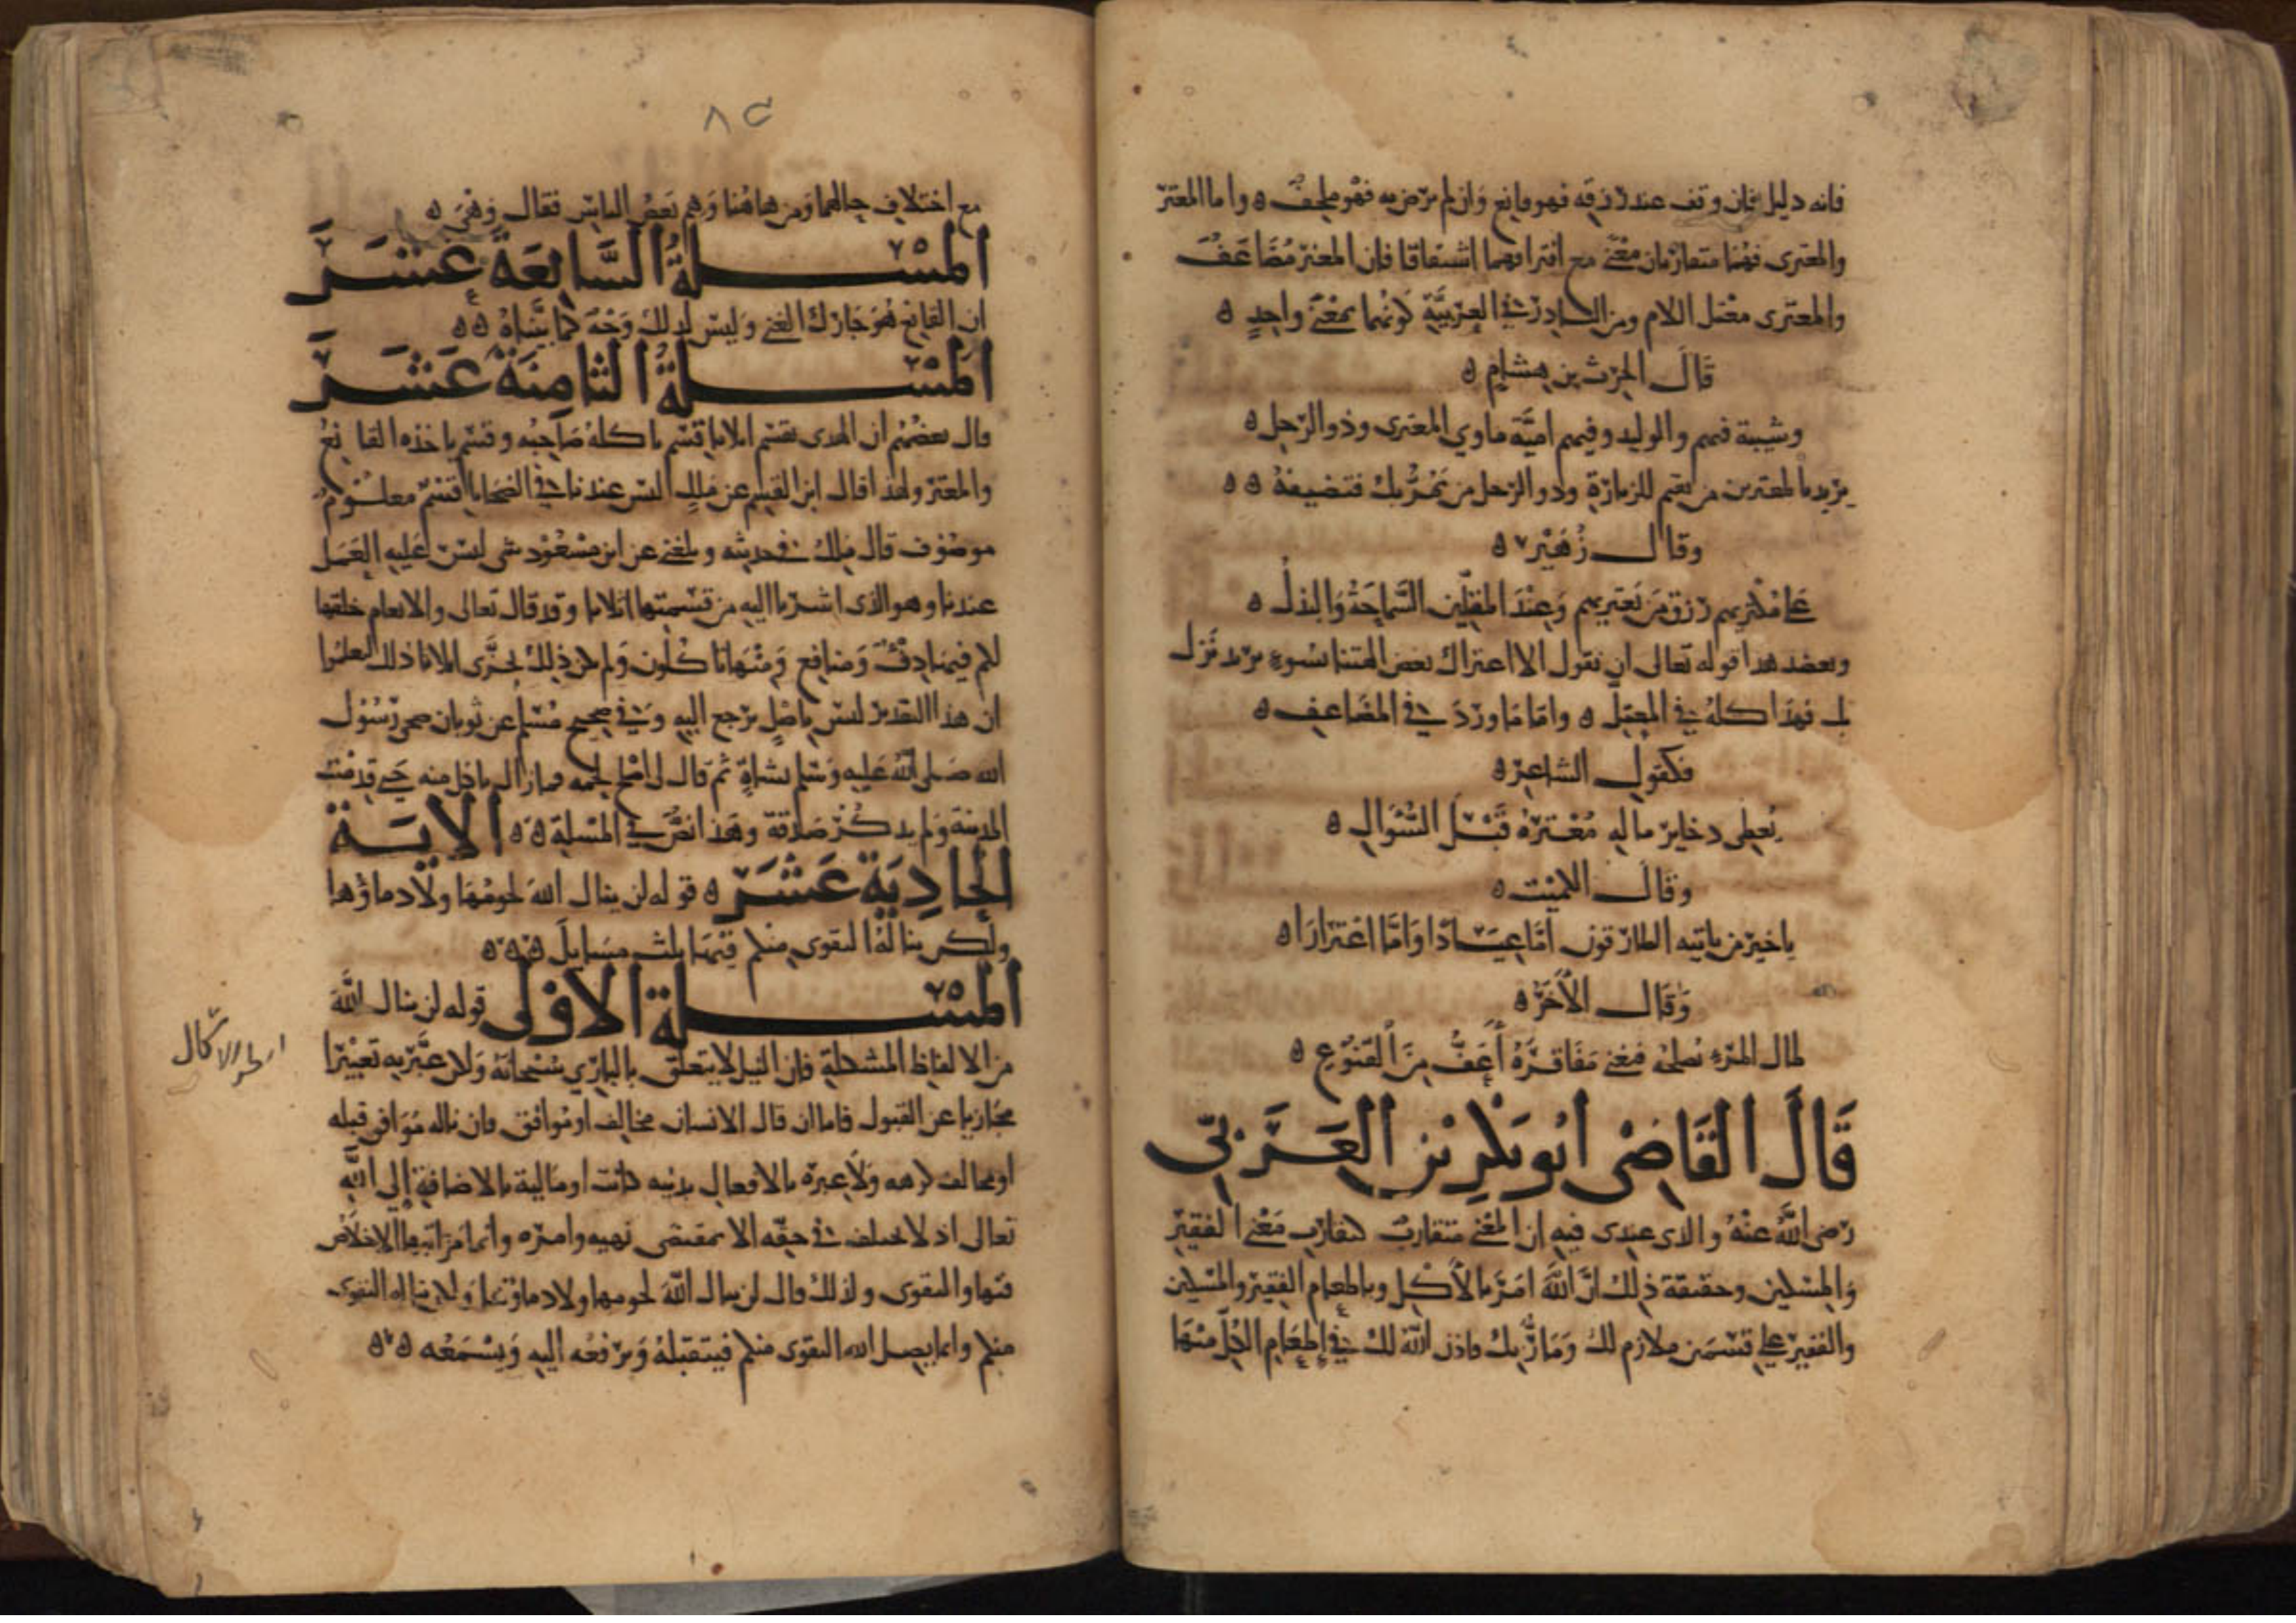 فانه دليل فان وقف عند رزقه فهو قانع وان لم يرض به فهو ملحف ه واما المعتر
والمعترى فهما متقاربان معنى مع افتراقهما اشتقاقا فان المعتر مُضَاعَف
والمعترى معتل اللام ومن النادر في العربيَّة كونهما بمعنى واحدٍ ه
قَالَ الحرث بن هشام ه
وشيبة فيهم والوليد وفيهم اميَّة ماوي المعترى وذو الرّحل ه
يريد بالمعترين من يقيم للزيارة وذو الرحل من يَمُرُّ بك فتضيفهُ ه ه
وقال زُهَيْر ه
على مُكثريهم رزق مَن يَعتريهم وَعِنْدَ المقلّين السَّماحَةُ وَالبذلُ ه
وبعضد هذا قوله تعالى ان نقول الا اعتراك بعض الهتنا بسوء يريد نَزل
بك فهَذا كلهُ في المعتلّ ه واما مَا وردَ في المضَاعف ه
فكقول الشاعر ه
يُعطى دخاير ماله مُعْترهُ قَبْلَ السُّؤال ه
وقَال الكميْت ه
ياخير من ياتيه الطارقون امَّا عيَادًا وَامَّا اعْترَارَا ه
وَقَال الآخَرُ ه
لمال المرء يُصلحهُ فيُغنى مَفَاقِرَهُ أعَفُّ مِنَ القنُوع ه
قَالَ القَاضِى ابُو بَكرِ بْنِ العَرَبِّى
رَضى اللَّهُ عنْهُ والذى عندى فيه ان المعْنى متقاربٌ كتقارب مَعْنى الفقير
وَالمسْكين وحقيقة ذلك انَّ اللَّهَ امَرَ بالأكل وباطعام الفقير والمسْكين
والفقير على قسْمَين ملازم لك وَمَارٌّ بك فاذن اللّه لك في إطعَام الكُلّ منْهَا
٨٢
مع اختلاف حالهما وَمن هَاهُنا وَهم بَعضُ الناسِ فقال وَهىَ ه
المسْـلةُ السَّابعَةَ عَشَرَ
ان القانع هُوَ جَارك الغنى وَليسَ لذلكَ وَجْهٌ كما بيَّناهُ ه ه
المسْـلةُ الثامِنَةَ عَشَرَ
قال بعضهُم ان الهدى يقسَم اثلاثا قسْم ياكلهُ صَاحبُه وقسْم ياخذه القانعُ
والمعترّ ولهذا قال ابن القسم عن مَلك ليس عندنا في الضحايا قسْمٌ معلُومٌ
موصُوف قال مَلك في حديثه وبلغنى عن ابن مسْعُود شى ليسَ عَليه العَمَل
عندنا وهو الذى اشرنا اليه من قسْمتها اثلاثا وقد قال تعالى والانعام خلقها
لكم فيهَا دفْء وَمنافع وَمنْهَا تاكُلُون وَلم يكن ذلك يجزى اثلاثا ذلك لتعلمُوا
ان هذا التقدير ليسَ باصْلٍ يرجع اليه وَفى صحيح مُسْلم عن ثوبان ضحى رَسُول
الله صَلى اللهُ عَليه وَسَلم بشاةٍ ثمّ قال لى اصْلح لحمه فما زال ياكل منه حَتى قدمت
المدينة وَلم يذكُرْ صَدَقة وهَذا نصٌّ في المسْلة ه ه الايَـة
الحَادِيَة عَشَرَ ه قوله لن ينال اللهَ لحومُهَا ولَا دماؤها
ولكن ينالهُ التقوى منكم فيْهَا ثلث مسَايلَ ه ه ه
المسْـلة الأوْلى قوله لن ينال اللَّهَ
من الالفاظ المشكلة فان النيل لا يتعلق بالباري سُبْحَانَهُ وَلكن عبَّر به تعبيْرًا
مجَازيا عن القبول فاما ان قال الانسان مخالف اومُوافق فان ناله مُوَافق قبله
اومخالف كرهه وَلَا عبرة بالافعال بدنيه كانت اومَالية بالاضافة إلى اللَّهِ
تعالى اذ لا يختلف في حقّه الا بمقتضى نهيه وامرِه وانما مَراتبها الاخلَاص
فيْها والتقوى ولذلك قال لن ينال اللّهَ لحومها ولا دماؤها وَلكن يناله التقوى
منكم وانما يصل الله التقوى منكم فيتقبلهُ وَيرفعُه اليه وَيسْمَعُه ه ه